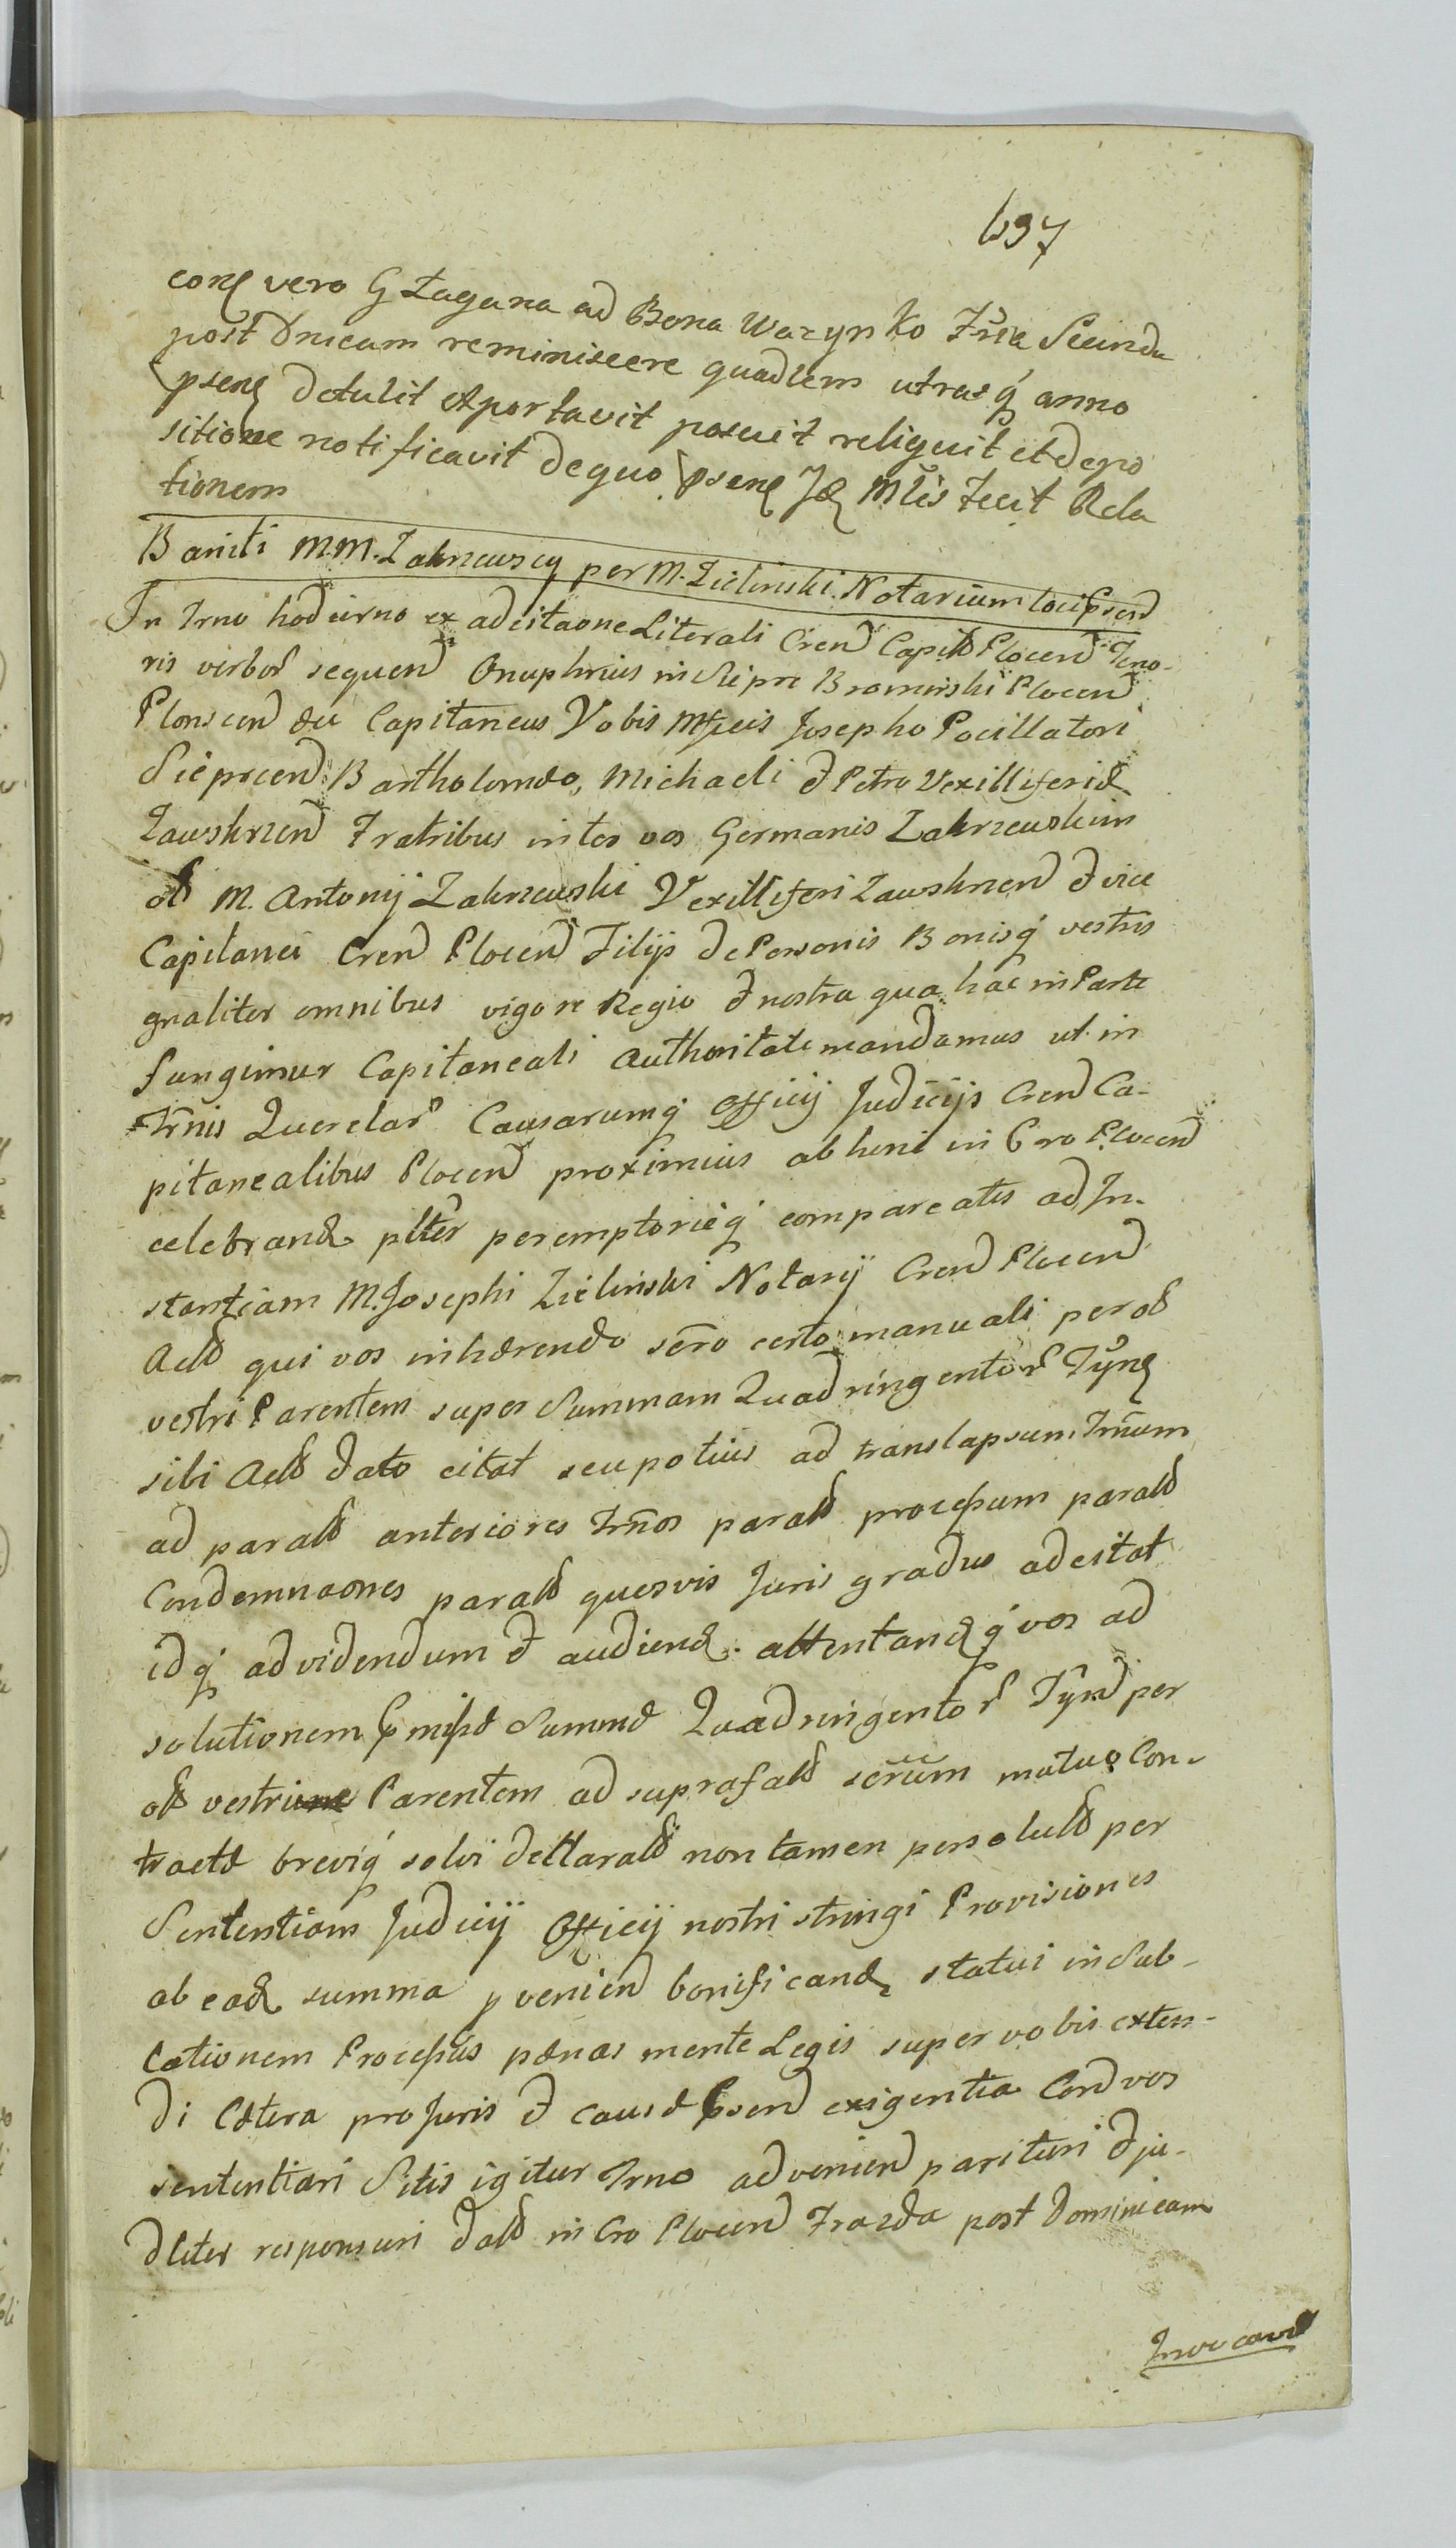 697
eore vero G Łagana ad Bona Warynko Fria Secunda
post Dnicam reminiscere quadlem utrasq anno
psens detulit et portavit posuit reliquit et depo
sitione notificavit de quo psens Id Mlis Fecit Rela
tionem
Baniti M.M. Zakrzewscy per M. Zielinski. Notarium loci psend
In Trno hodierno ex adcitaone Literali Crend Capitd Plocend Teno-
ris verbor sequend Onuphrius in Siepre Bromirski Plocend
Plonscend du Capitaneus Vobis Mficis Josepho Pocillatori
Sieprcend Bartholomæo, Michaeli et Petro Vexilliferid
Zawskrzend Fratribus inter vos Germanis Zakrzewskim
old M. Antonij Zakrzewski Vexilliferi Zawskrzend et vice
Capitanei Crend Plocend Filijs de Personis Bonisq vestris
gnaliter omnibus vigore Regio et nostra qua hac in Parte
fungimur Capitaneali Authoritate mandamus ut in
Trnis Querelar Causarumq Officij Judicijs Crend Ca-
pitanealibus Plocend proximius ab hinc in Cro Plocend
celebrand plter peremptorieq compareatis ad In-
stantiam M. Josephi Zielinski Notarij Crend Plocend
Actd qui vos inhærendo sčro certo manuali per old
vestri Parentem super Summam Quadringentor Tynf
sibi Actd dato citat seu potius ad translapsum Trnum
ad paratd anteriores Trnos paratd processum paratd
Condemnaones paratd quosvis Juris gradus adcitat
idq ad videndum et audiend. attentandq vos ad
solutionem pmissæ Summæ Quadringentor Tynf per
old vestri Parentem ad suprafatd sčrum mutuo Con-
tractæ breviq solvi dettaratd non tamen persolutd per
Sententiam Judicij Officij nostri stringi Provisiones
ab ead summa pveniend bonificand statui in Sub-
lationem Processus pænas mente Legis super vobis exten-
di Cætera pro Juris et causæ psend exigentia Cond vos
sententiari Sitis igitur Trno adveniend parituri et ju-
dleter responsuri datd in Cro Plocend Frazda post Dominicam
Invocavit